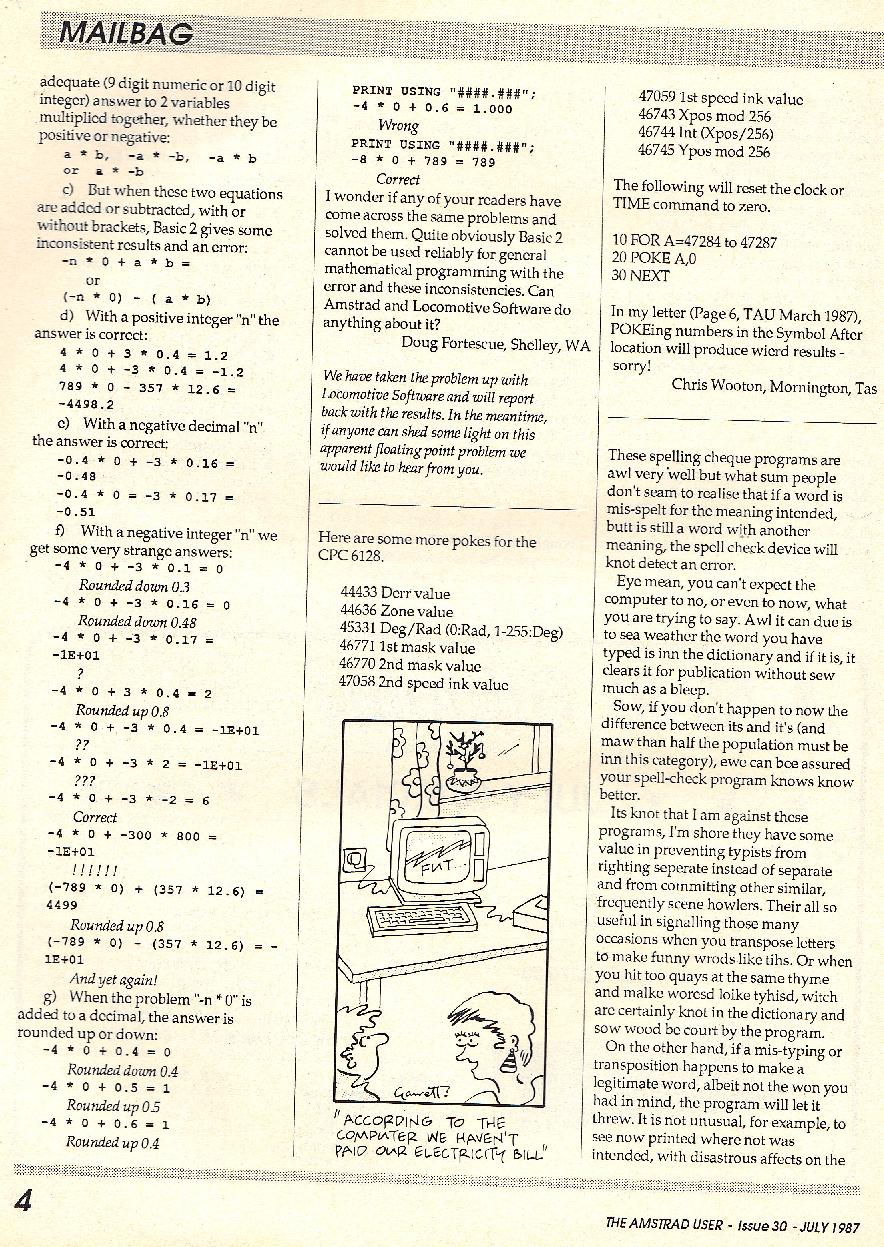 MAILBAG
adequate (9 digit numeric or 10 digit
integer) answer to 2 variables
multiplied together, whether they be
positive or negative:
a * b, -a * -b, -a * b
or a * -b
c) But when these two equations
are added or subtracted, with or
without brackets, Basic 2 gives some
inconsistent results and an error:
-n * 0 + a * b =
or
(-n * 0) - ( a * b)
d) With a positive integer "n" the
answer is correct:
4 * 0 + 3 * 0.4 = 1.2
4 * 0 + -3 * 0.4 = -1.2
789 * 0 - 357 * 12.6 =
-4498.2
e) With a negative decimal "n"
the answer is correct:
-0.4 * 0 + -3 * 0.16 =
-0.48
-0.4 * 0 = -3 * 0.17 =
-0.51
f) With a negative integer "n" we
get some very strange answers:
-4 * 0 + -3 * 0.1 = 0
Rounded down 0.3
-4 * 0 + -3 * 0.16 = 0
Rounded down 0.48
-4 * 0 + -3 * 0.17 =
-1E+01
?
-4 * 0 + 3 * 0.4 = 2
Rounded up 0.8
-4 * 0 + -3 * 0.4 = -1E+01
??
-4 * 0 + -3 * 2 = -1E+01
???
-4 * 0 + -3 * -2 = 6
Correct
-4 * 0 + -300 * 800 =
-1E+01
!!!!!!
(-789 * 0) + (357 * 12.6) =
4499
Rounded up 0.8
(-789 * 0) - (357 * 12.6) = -
1E+01
And yet again!
g) When the problem "-n * 0" is
added to a decimal, the answer is
rounded up or down:
-4 * 0 + 0.4 = 0
Rounded down 0.4
-4 * 0 + 0.5 = 1
Rounded up 0.5
-4 * 0 + 0.6 = 1
Rounded up 0.4
PRINT USING "####.###";
-4 * 0 + 0.6 = 1.000
Wrong
PRINT USING "####.###";
-8 * 0 + 789 = 789
Correct
I wonder if any of your readers have
come across the same problems and
solved them. Quite obviously Basic 2
cannot be used reliably for general
mathematical programming with the
error and these inconsistencies. Can
Amstrad and Locomotive Software do
anything about it?
Doug Fortescue, Shelley, WA
We have taken the problem up with
Locomotive Software and will report
back with the results. In the meantime,
if anyone can shed some light on this
apparent floating point problem we
would like to hear from you.
Here are some more pokes for the
CPC 6128.
44433 Derr value
44636 Zone value
45331 Deg/Rad (0:Rad, 1-255:Deg)
46771 1st mask value
46770 2nd mask value
47058 2nd speed ink value
FHT..
Garrett?
"ACCORDING TO THE
COMPUTER WE HAVEN'T
PAID OUR ELECTRICITY BILL"
47059 1st speed ink value
46743 Xpos mod 256
46744 Int (Xpos/256)
46745 Ypos mod 256
The following will reset the clock or
TIME command to zero.
10 FOR A=47284 to 47287
20 POKE A,0
30 NEXT
In my letter (Page 6, TAU March 1987),
POKEing numbers in the Symbol After
location will produce wierd results -
sorry!
Chris Wooton, Mornington, Tas
These spelling cheque programs are
awl very well but what sum people
don't seam to realise that if a word is
mis-spelt for the meaning intended,
butt is still a word with another
meaning, the spell check device will
knot detect an error.
Eye mean, you can't expect the
computer to no, or even to now, what
you are trying to say. Awl it can due is
to sea weather the word you have
typed is inn the dictionary and if it is, it
clears it for publication without sew
much as a bleep.
Sow, if you don't happen to now the
difference between its and it's (and
maw than half the population must be
inn this category), ewe can bee assured
your spell-check program knows know
better.
Its knot that I am against these
programs, I'm shore they have some
value in preventing typists from
righting seperate instead of separate
and from committing other similar,
frequently scene howlers. Their all so
useful in signalling those many
occasions when you transpose letters
to make funny wrods like tihs. Or when
you hit too quays at the same thyme
and malke woresd loike tyhisd, witch
are certainly knot in the dictionary and
sow wood be court by the program.
On the other hand, if a mis-typing or
transposition happens to make a
legitimate word, albeit not the won you
had in mind, the program will let it
threw. It is not unusual, for example, to
see now printed where not was
intended, with disastrous affects on the
4
THE AMSTRAD USER - Issue 30 - JULY 1987